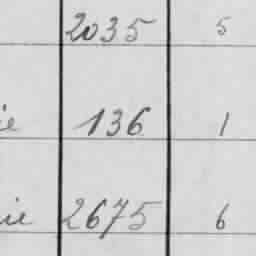 2035 5
ie 136 1
ie 2675 6